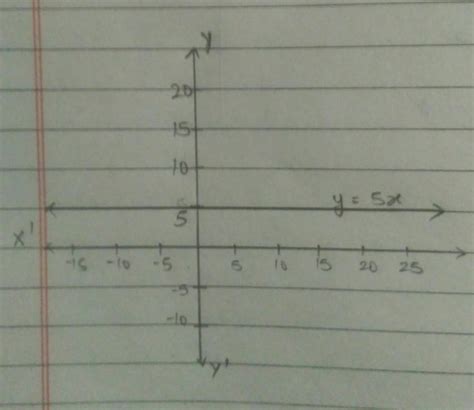 y
20
15
10
y = 5x
5
x'
-15 -10 -5 5 10 15 20 25
-5
-10
y'